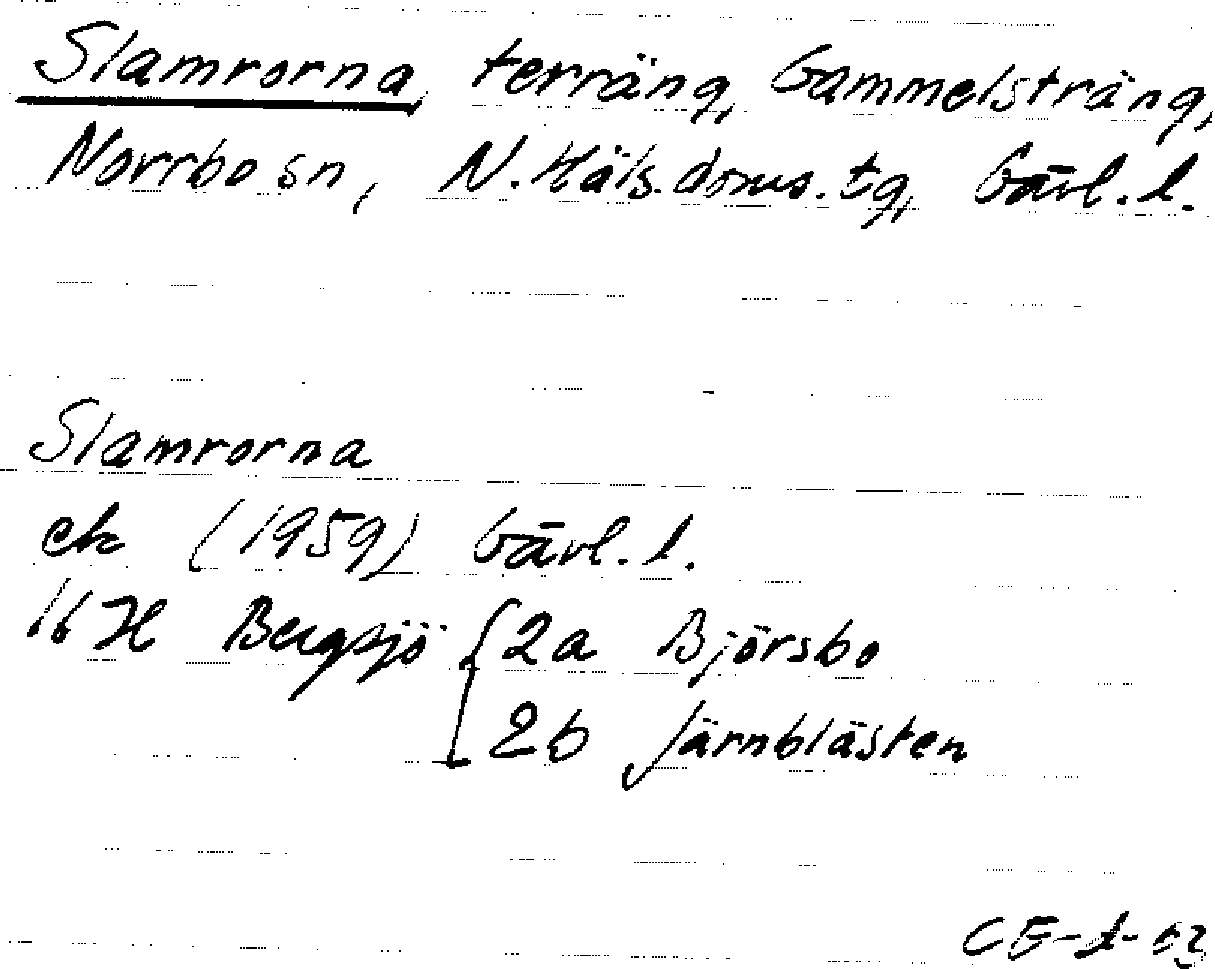 Slamrorna, terräng, Gammelsträng,
Norrbo sn, N. Häls. doms. tg, Gävl. l.
Slamrorna
ek (1959) Gävl. l.
16 H Bergsjö { 2a Björsbo
2b Järnblästen